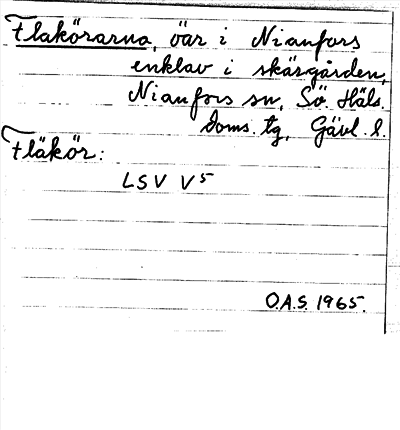 Flakörarna, öar i Nianfors
enklav i skärgården,
Nianfors sn, Sö. Häls.
doms. tg, Gävl. l.
Fläkör:
LSV V5
O.A.S. 1965.